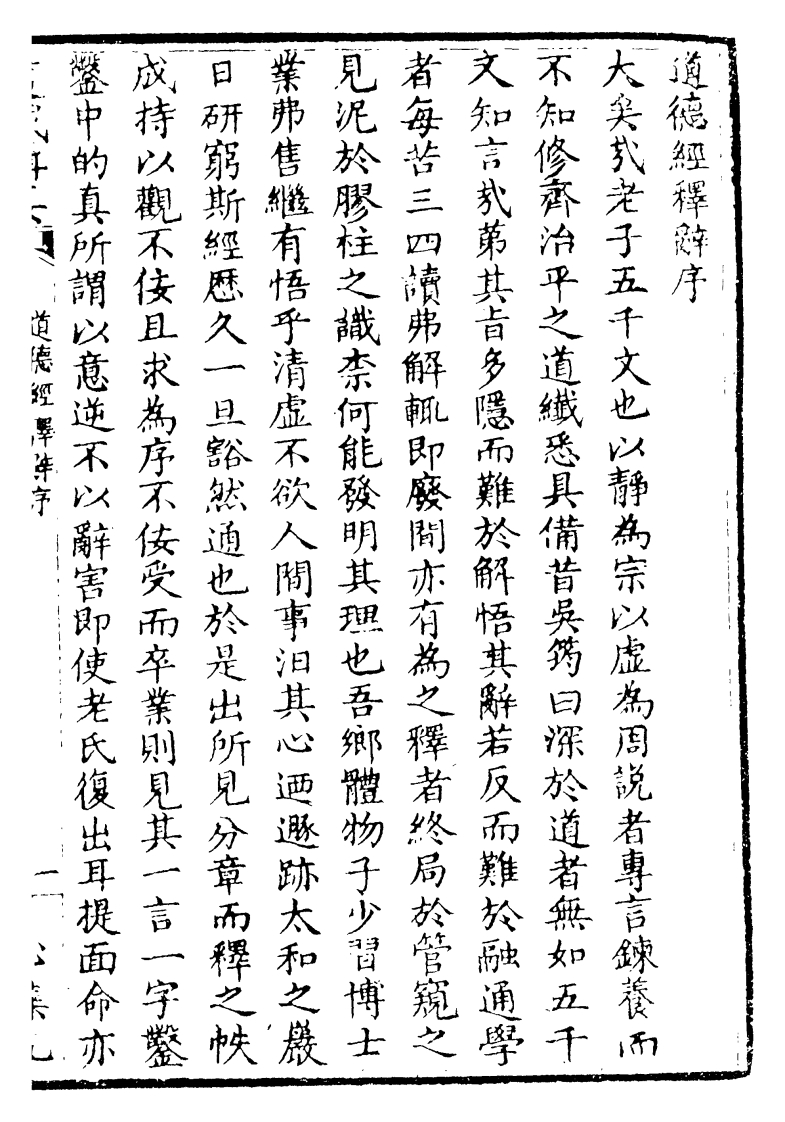 道德經釋辭序
大矣㢤老子五千文也以靜為宗以虛為周說者專言鍊養而
不知修齊治平之道纖悉具備昔吳筠曰深於道者無如五千
文知言㢤苐其旨多隱而難於解悟其辭若反而難於融通學
者每苦三四讀弗解輒即廢間亦有為之釋者終局於管窺之
見泥於膠柱之識柰何能發明其理也吾鄉體物子少習博士
業弗售繼有悟乎清虛不欲人間事汩其心迺遯跡太和之巖
日硏窮斯經歷久一旦豁然通也於是出所見分章而釋之帙
成持以觀不佞且求為序不佞受而卒業則見其一言一字鑿
鑿中的真所謂以意逆不以辭害即使老氏復出耳提面命亦
道德經釋辭序
一